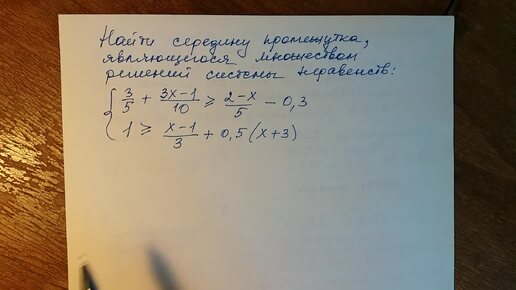 Найти середину промежутка,
являющегося множеством
решений системы неравенств:
3/5 + (3x-1)/10 ⩾ (2-x)/5 - 0,3
1 ⩾ (x-1)/3 + 0,5(x+3)